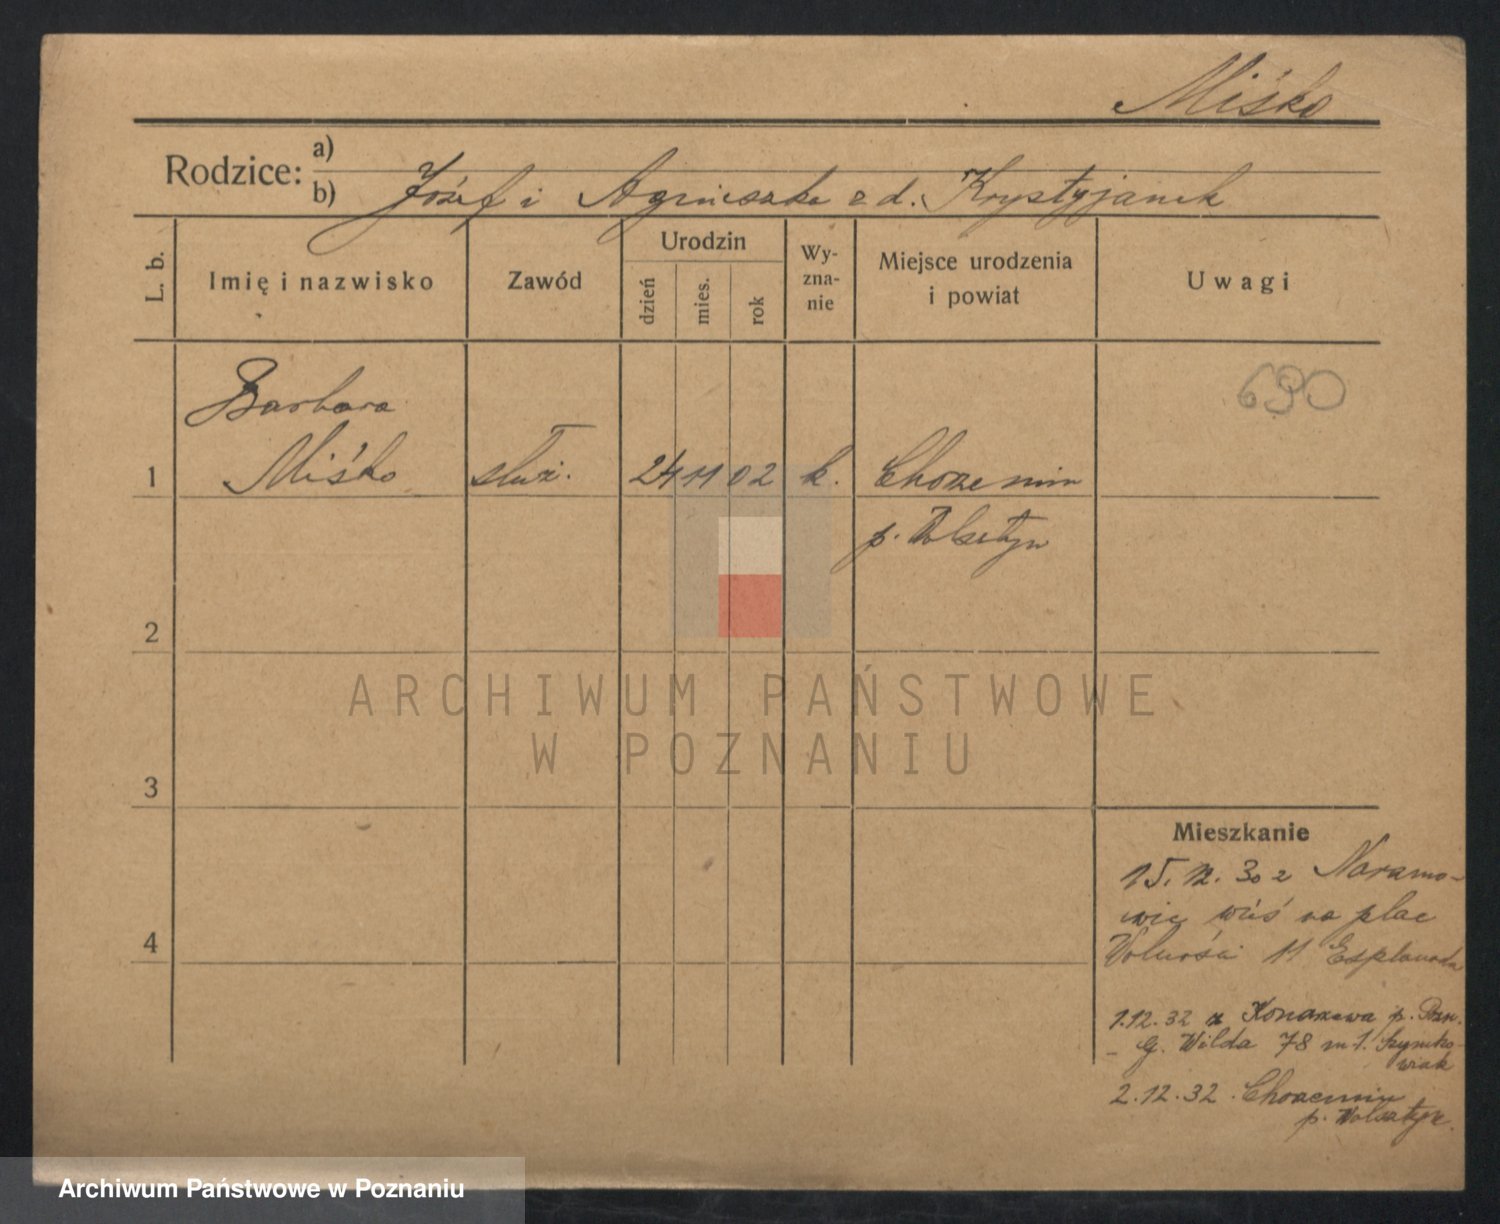 Miśko
Rodzice:
a)
b) Józef i Agnieszka z d. Krystyjanek
L. b.
Imię i nazwisko
Zawód
Urodzin
dzień
mies.
rok
Wy-
zna-
nie
Miejsce urodzenia
i powiat
Uwagi
690
Barbara
1 Miśko służ. 24 11 02 k. Chorzemin
p. Wolsztyn
2
3
4
ARCHIWUM PAŃSTWOWE
W POZNANIU
Mieszkanie
15. 12. 30 z Naramo-
wic wieś na plac
Wolności 11 Esplanada
1.12.32 z Konarzewa p. Pozn.
G. Wilda 78 m 1. Szymko-
wiak
2.12.32. Chorzemin
p. Wolsztyn.
Archiwum Państwowe w Poznaniu